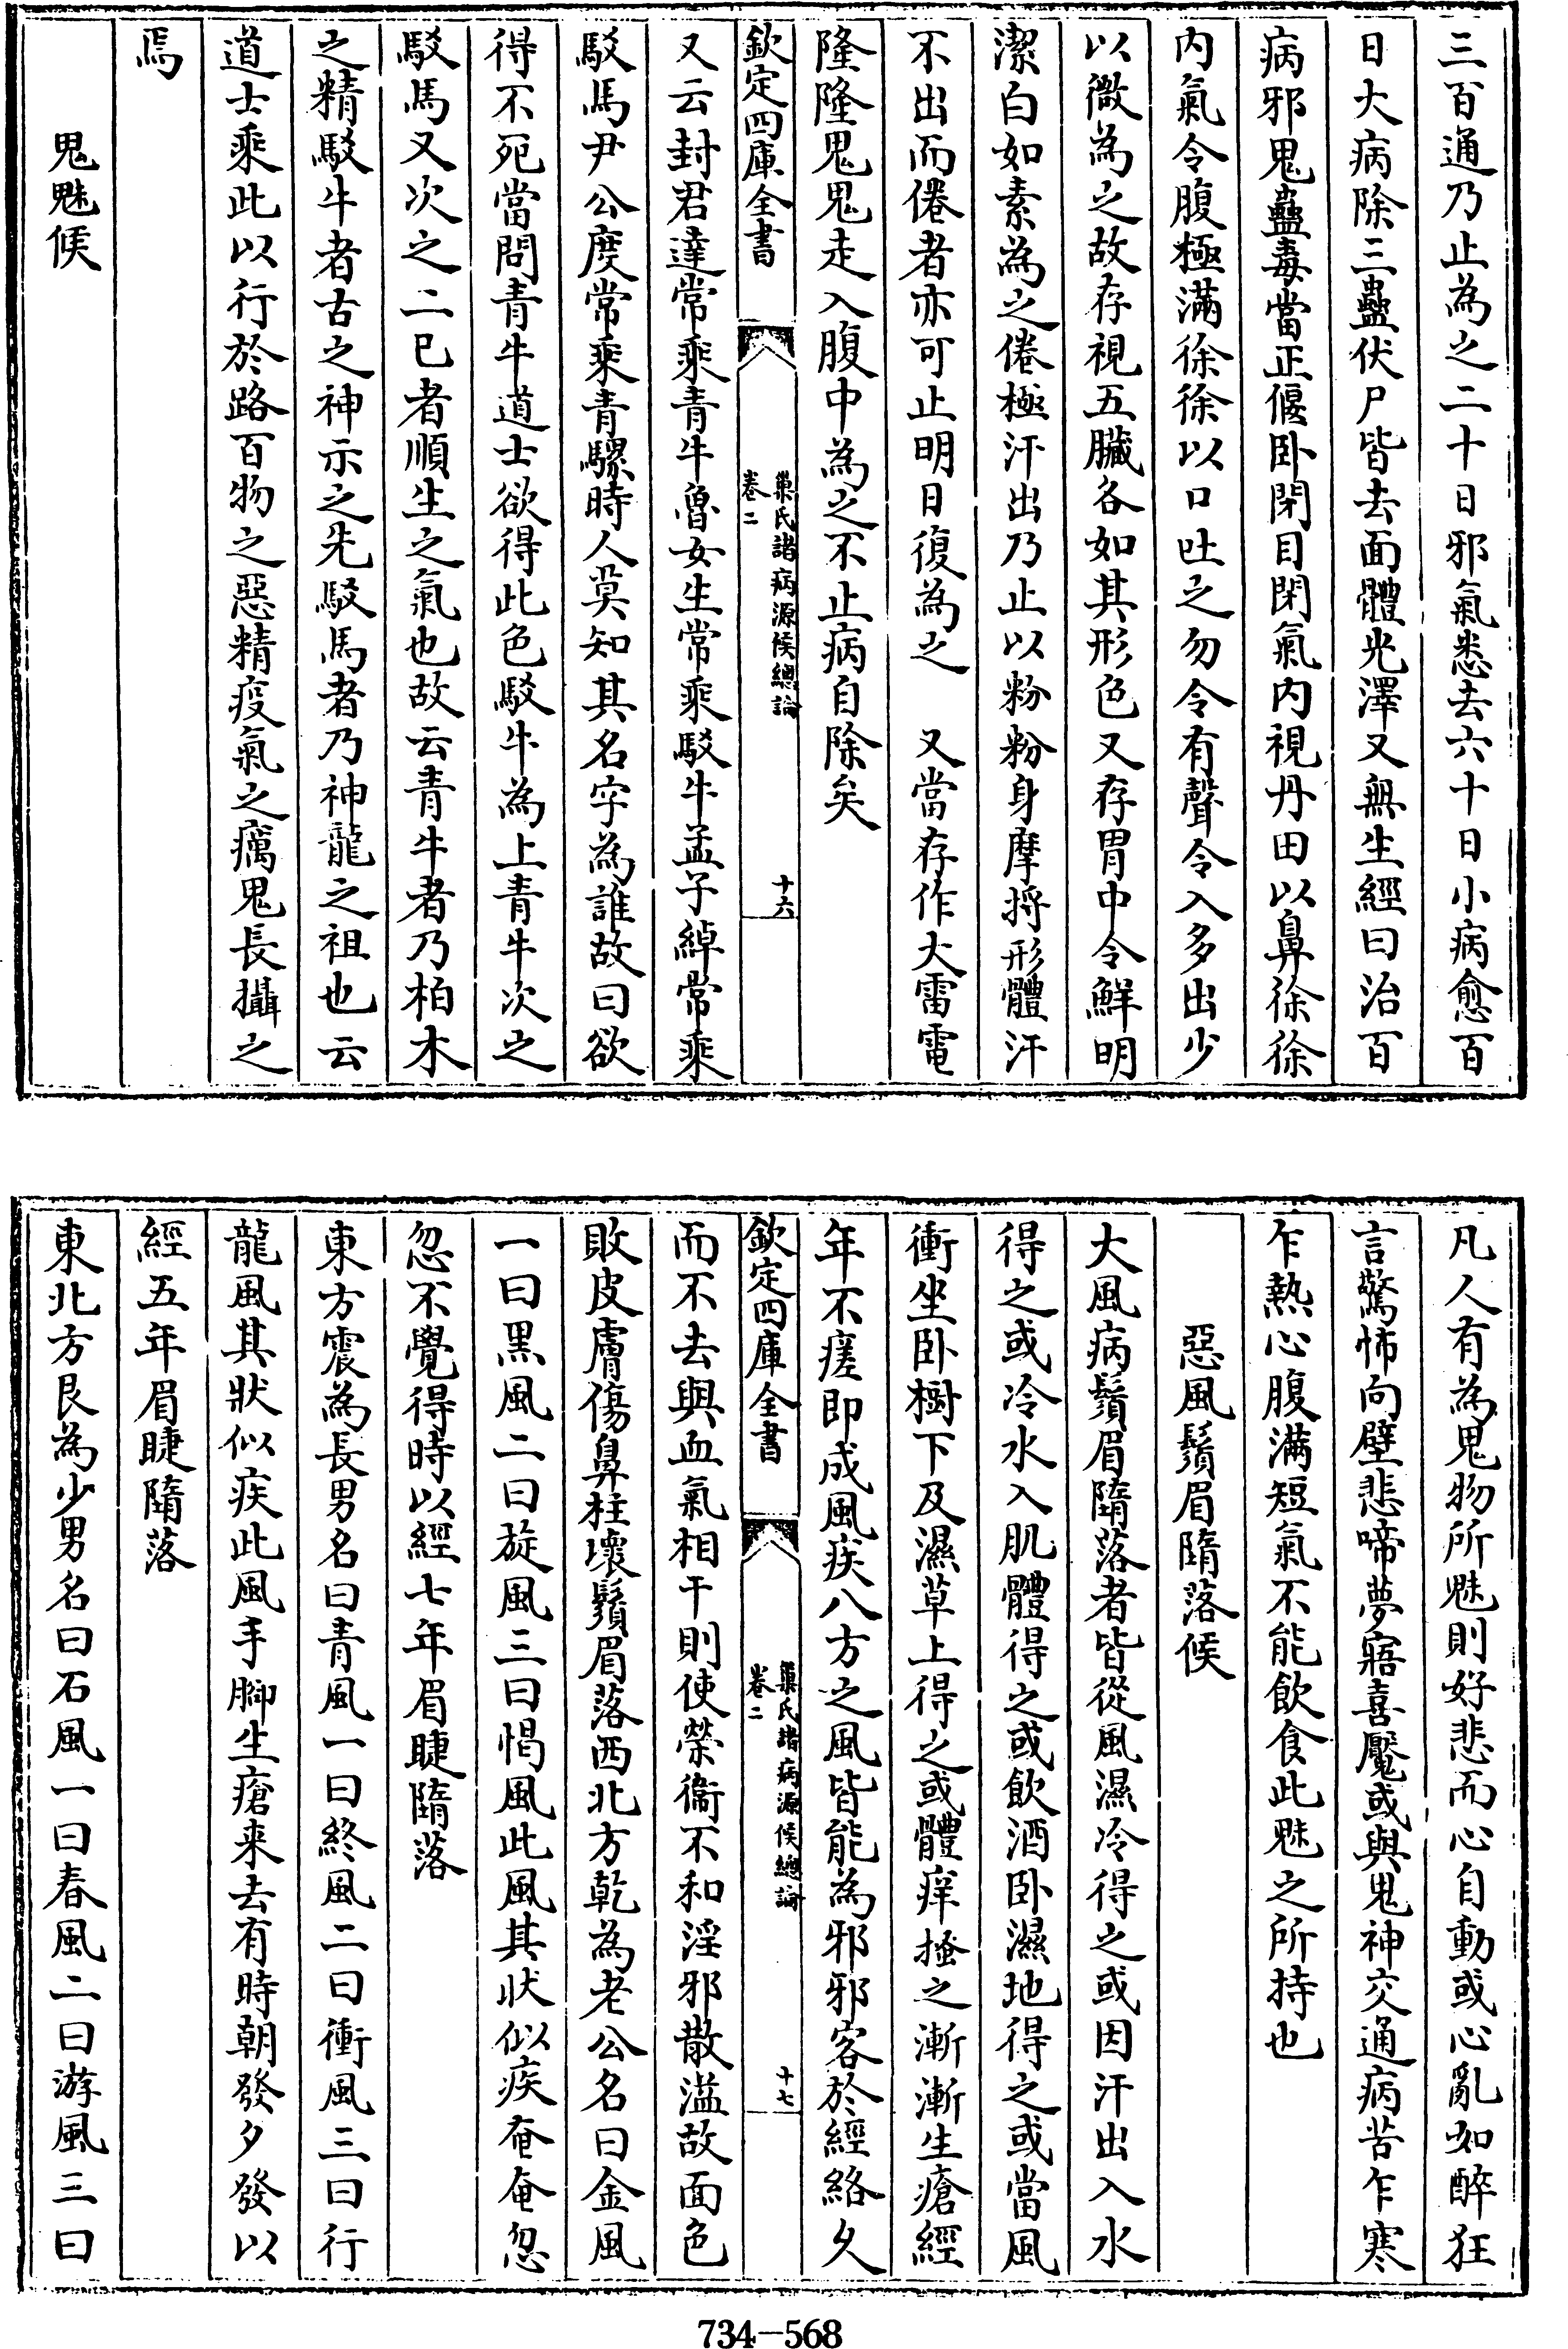 三百通乃止為之二十日邪氣悉去六十日小病愈百
日大病除三蠱伏尸皆去面體光澤又無生經曰治百
病邪鬼蠱毒當正偃卧閉目閉氣內視丹田以鼻徐徐
內氣令腹極滿徐徐以口吐之勿令有聲令入多出少
以微為之故存視五臟各如其形色又存胃中令鮮明
潔白如素為之倦極汗出乃止以粉粉身摩捋形體汗
不出而倦者亦可止明日復為之　又當存作大雷電
隆隆鬼鬼走入腹中為之不止病自除矣
欽定四庫全書
巢氏諸病源候總論
卷二
十六
又云封君達常乘青牛魯女生常乘駁牛孟子綽常乘
駁馬尹公度常乘青騾時人莫知其名字為誰故曰欲
得不死當問青牛道士欲得此色駁牛為上青牛次之
駁馬又次之二已者順生之氣也故云青牛者乃柏木
之精駁牛者古之神示之先駁馬者乃神龍之祖也云
道士乘此以行於路百物之惡精疫氣之癘鬼長攝之
焉
鬼魅候
凡人有為鬼物所魅則好悲而心自動或心亂如醉狂
言驚怖向壁悲啼夢寤喜魘或與鬼神交通病苦乍寒
乍熱心腹滿短氣不能飲食此魅之所持也
惡風鬚眉隋落候
大風病鬚眉隋落者皆從風濕冷得之或因汗出入水
得之或冷水入肌體得之或飲酒卧濕地得之或當風
衝坐卧樹下及濕草上得之或體痒搔之漸漸生瘡經
年不瘥即成風疾八方之風皆能為邪邪客於經絡久
欽定四庫全書
巢氏諸病源候總論
卷二
十七
而不去與血氣相干則使榮衞不和淫邪散溢故面色
敗皮膚傷鼻柱壞鬚眉落西北方乾為老公名曰金風
一曰黑風二曰旋風三曰愒風此風其狀似疾奄奄忽
忽不覺得時以經七年眉睫隋落
東方震為長男名曰青風一曰終風二曰衝風三曰行
龍風其狀似疾此風手脚生瘡来去有時朝發夕發以
經五年眉睫隋落
東北方艮為少男名曰石風一曰春風二曰游風三曰
734-568